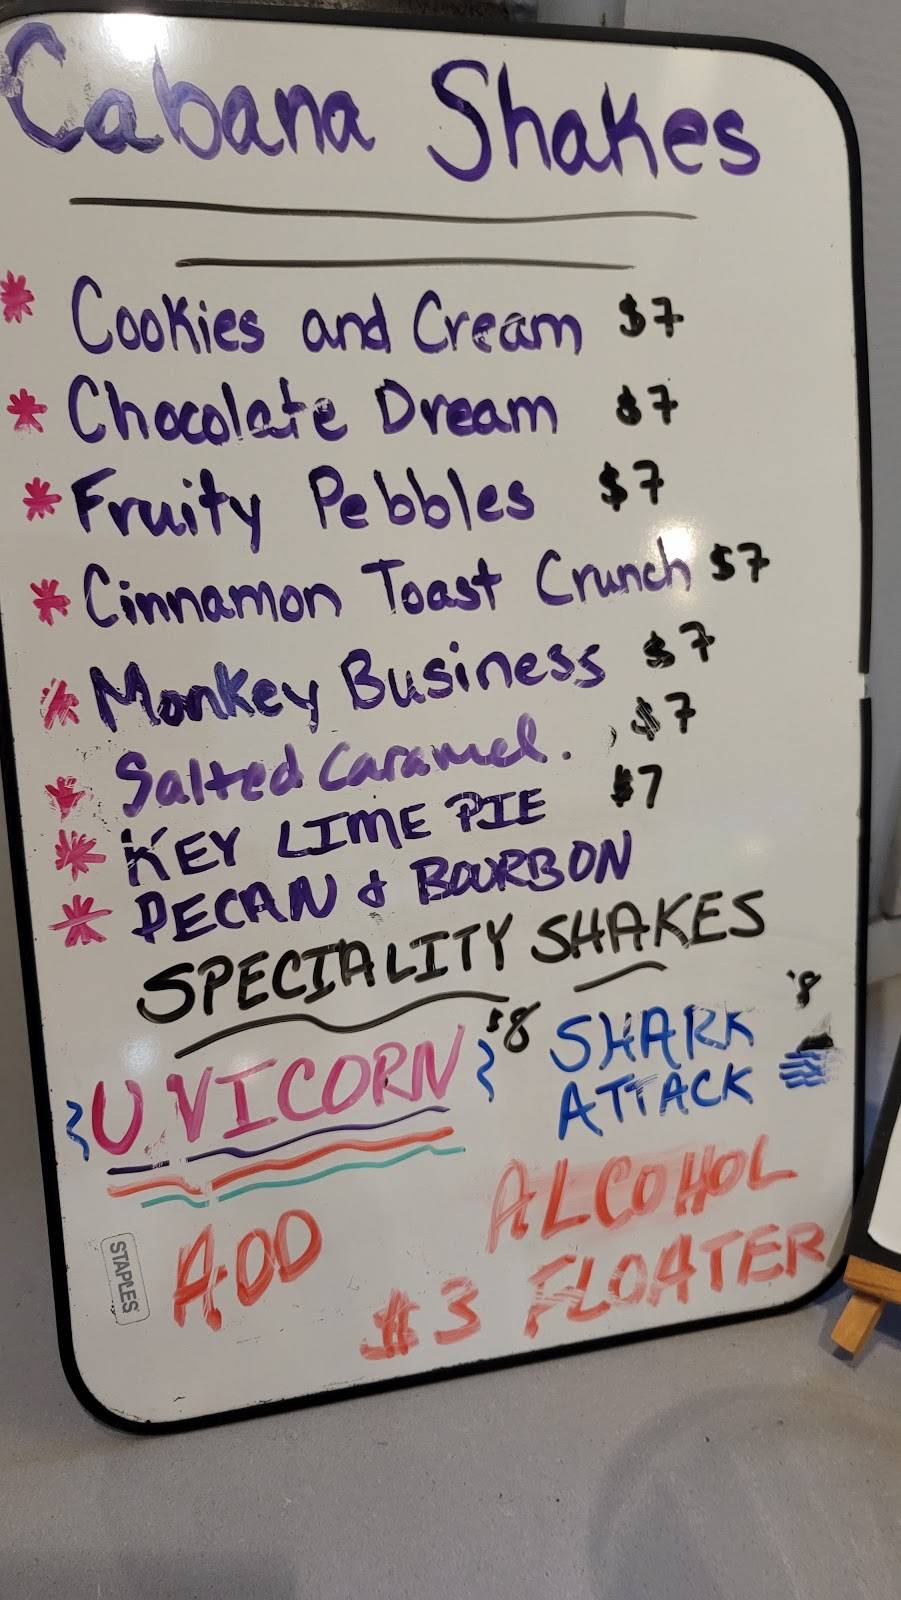 Cabana Shakes
* Cookies and Cream $7
* Chocolate Dream $7
* Fruity Pebbles $7
* Cinnamon Toast Crunch $7
* Monkey Business $7
* Salted Caramel. $7
* KEY LIME PIE $7
* PECAN & BOURBON
SPECIALITY SHAKES
UNICORN $8
SHARK $8
ATTACK
ADD ALCOHOL
$3 FLOATER
STAPLES